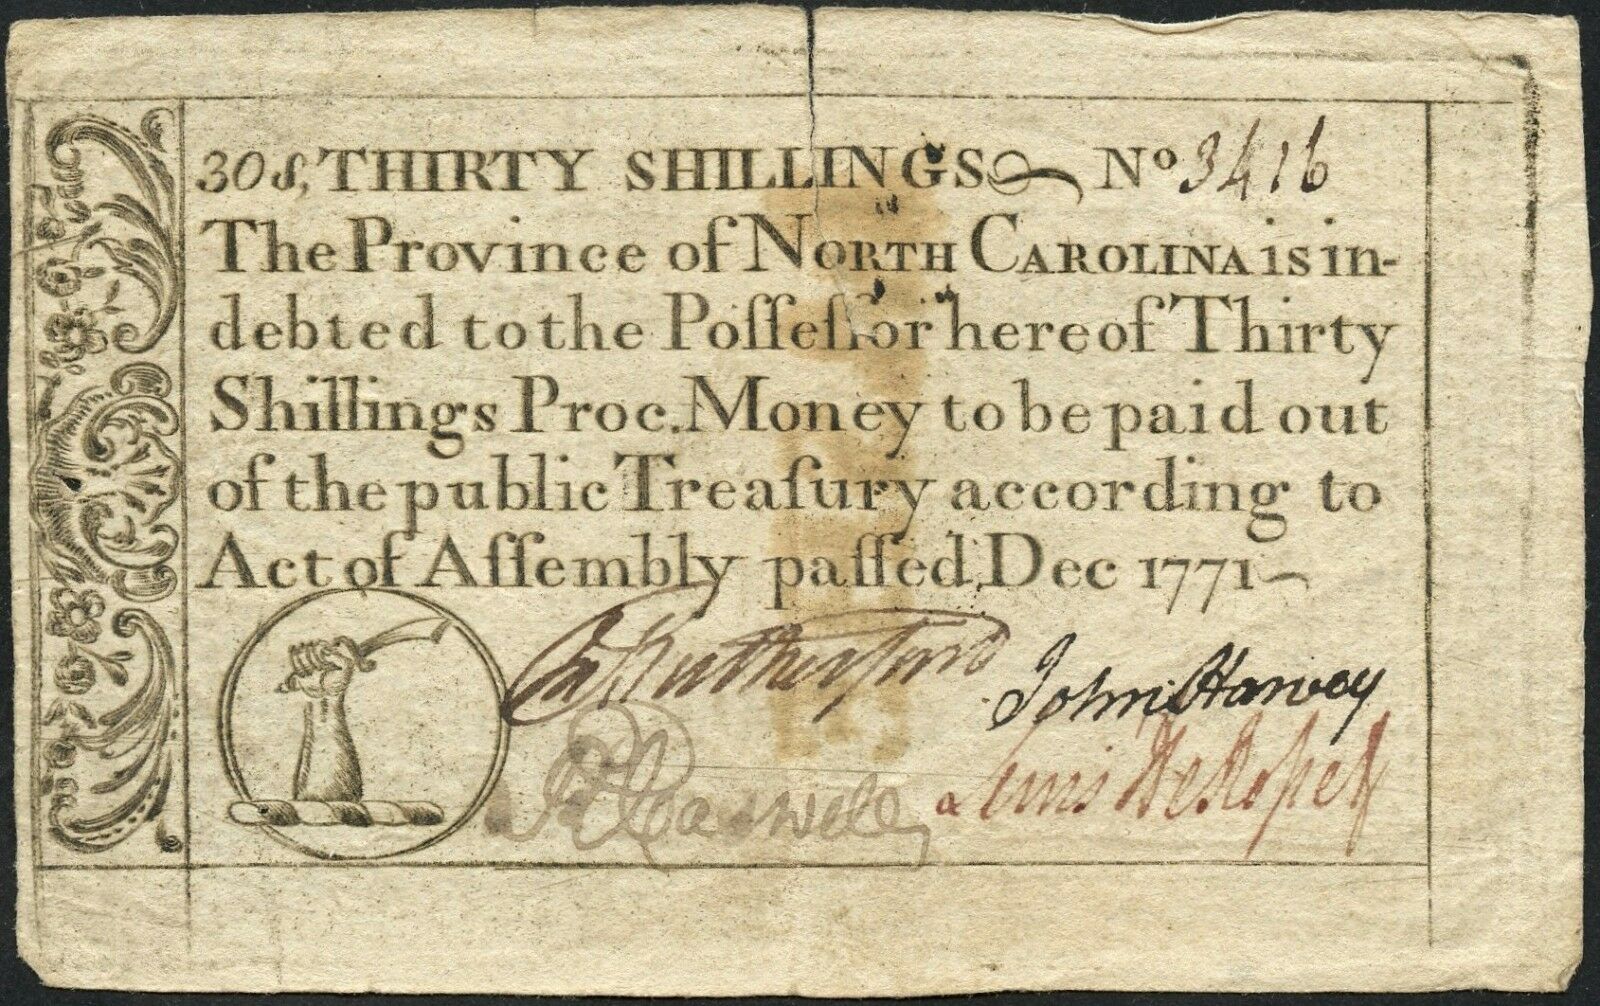 30s, THIRTY SHILLINGS No 3416
The Province of NORTH CAROLINA is in-
debted to the Poſſeſſor hereof Thirty
Shillings Proc. Money to be paid out
of the public Treaſury according to
Act of Aſſembly paſſed, Dec 1771
Rutherfurd
John Harvey
R Caswell
Lewis DeRosset